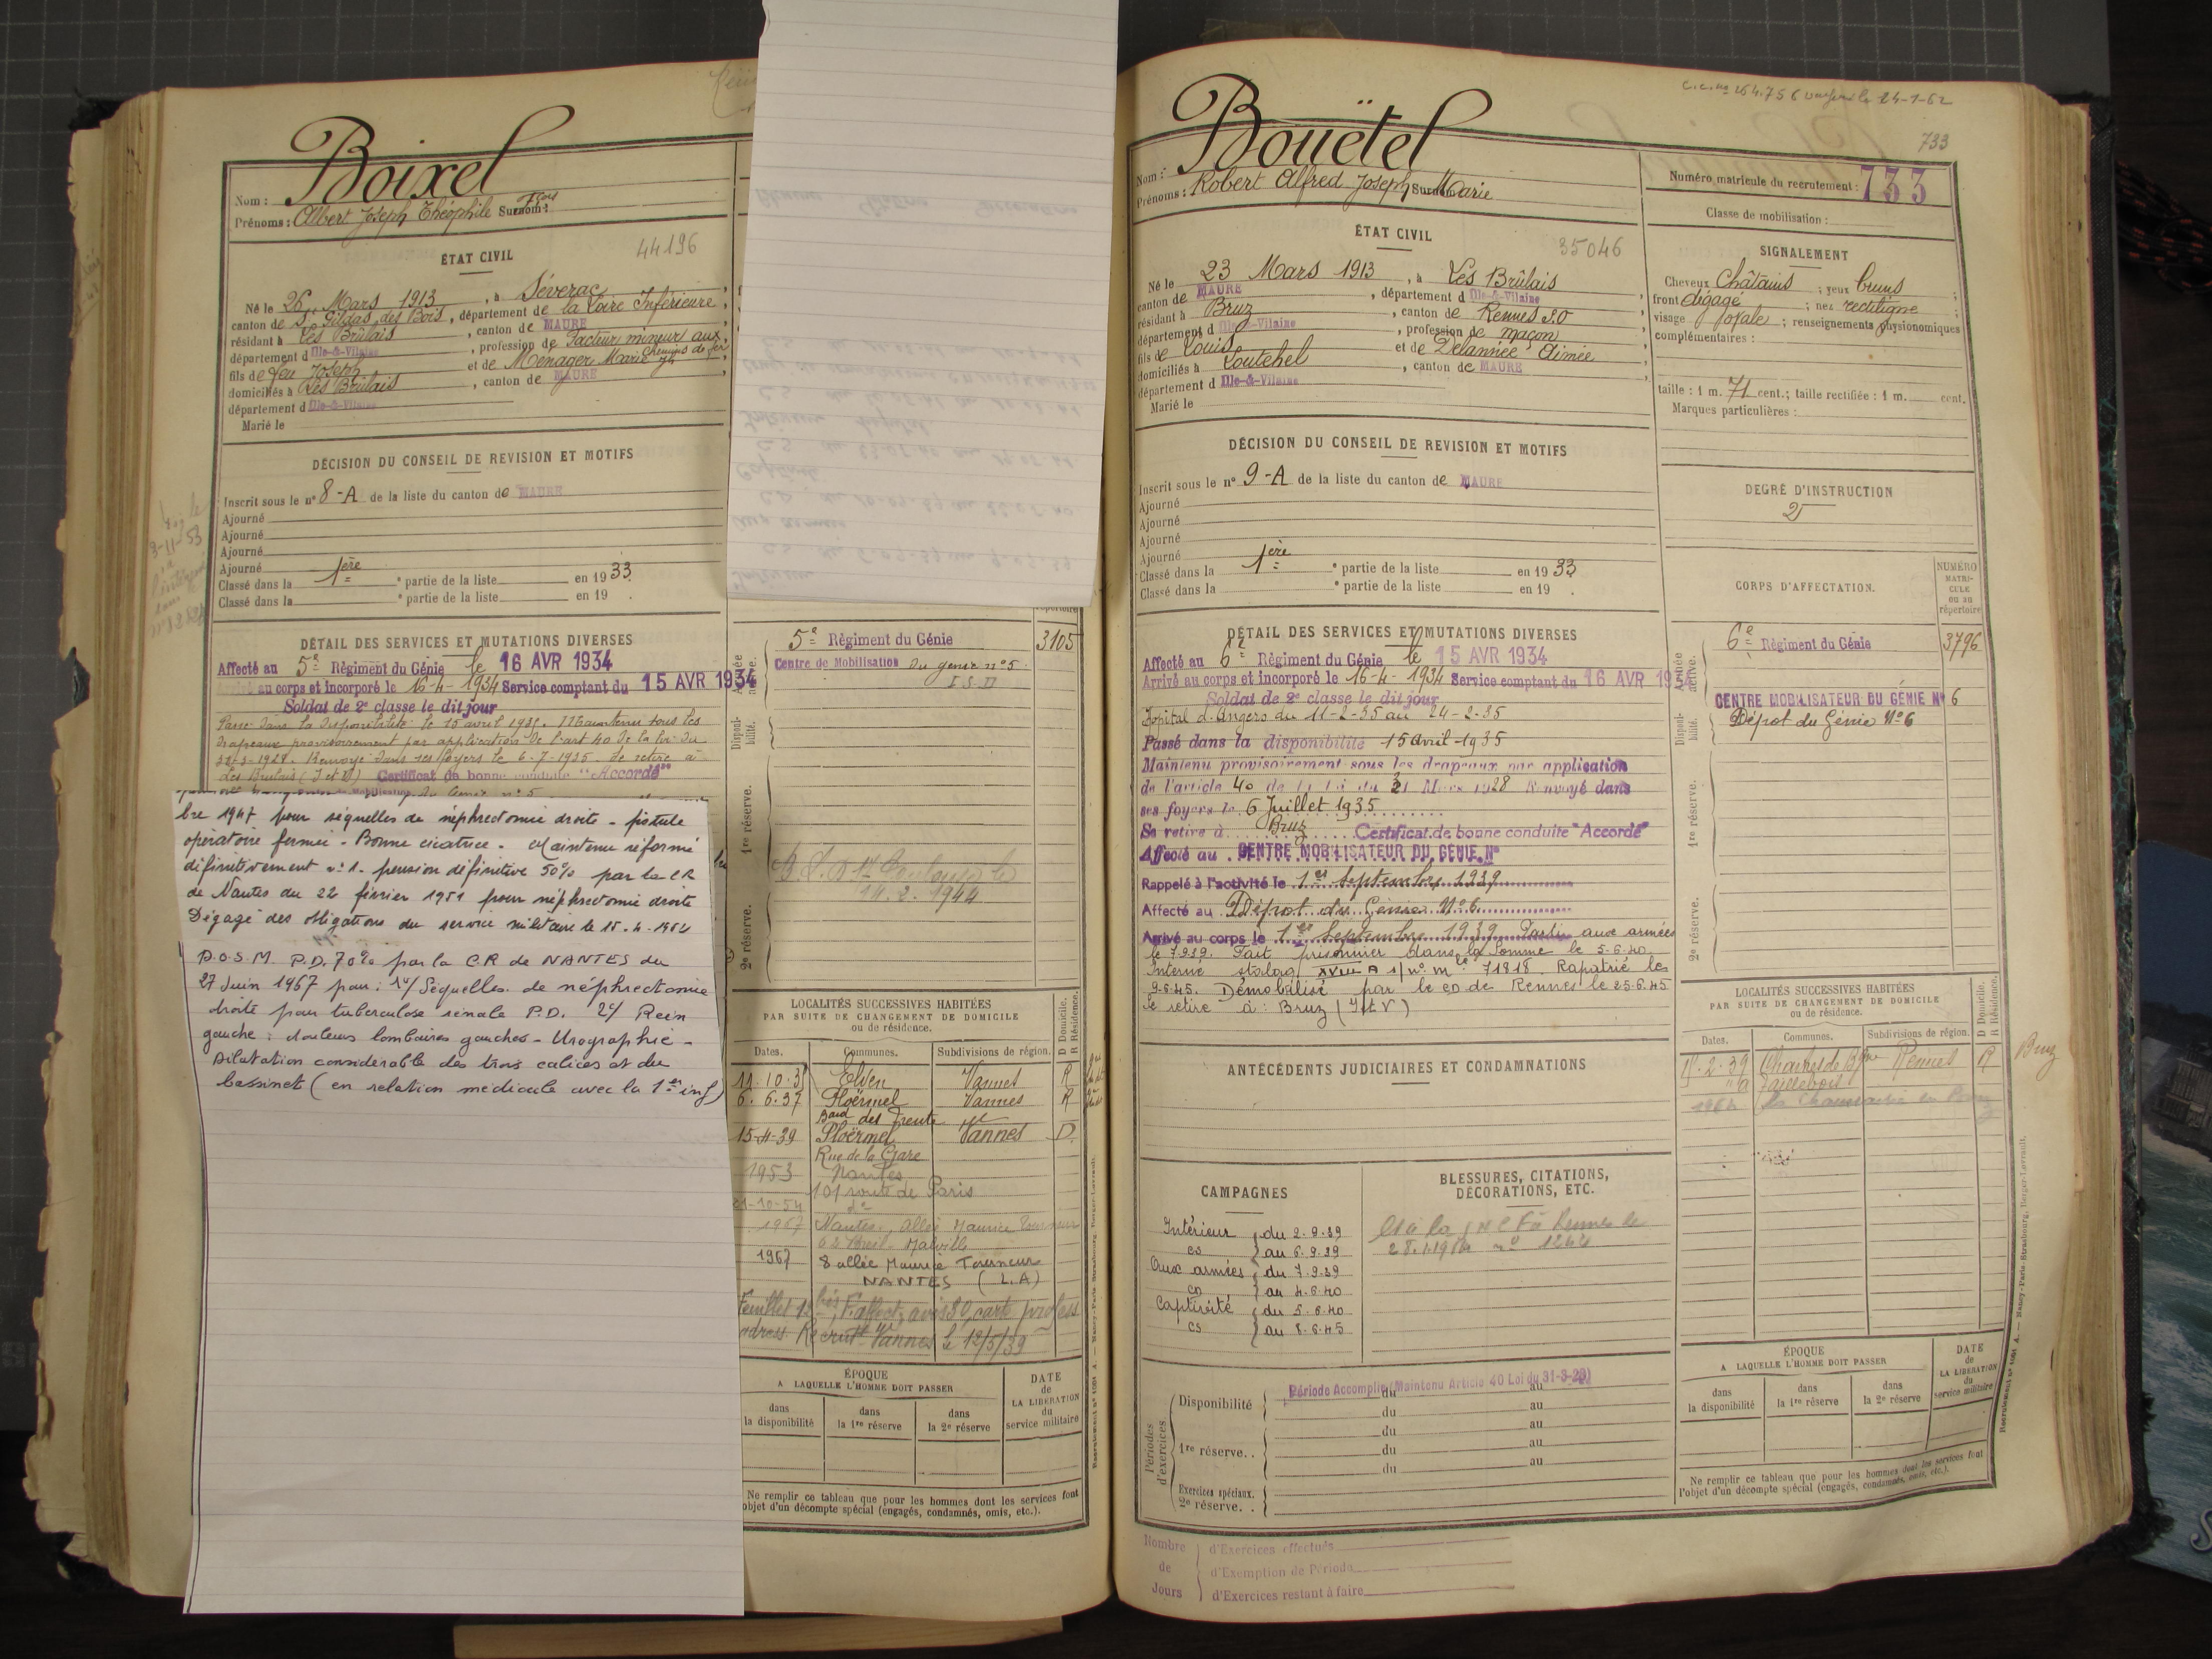 Boixel
Nom :
Prénoms : Albert Joseph Théophile Surnom :
ÉTAT CIVIL
44196
Né le 26 Mars 1913, à Séverac
canton de St Gildas des Bois, département de la Loire Inférieure,
résidant à Les Brûlais, canton de MAURE
département d Ille-&-Vilaine, profession de Facteur mineur aux Chemins de fer
fils de feu Joseph et de Ménager Marie
domiciliés à Les Brûlais, canton de MAURE
département d Ille-&-Vilaine
Marié le
DÉCISION DU CONSEIL DE REVISION ET MOTIFS
Inscrit sous le n° 8-A de la liste du canton de MAURE
Ajourné
Ajourné
Ajourné
Ajourné
Classé dans la 1ère e partie de la liste en 1933.
Classé dans la e partie de la liste en 19 .
DÉTAIL DES SERVICES ET MUTATIONS DIVERSES
Affecté au 5e Régiment du Génie le 16 AVR 1934
Arrivé au corps et incorporé le 16-4-1934 Service comptant du 15 AVR 1934
Soldat de 2e classe le dit jour
Passé dans la disponibilité le 15 avril 1935. Maintenu sous les
drapeaux provisoirement par application de l'art 40 de la loi du
31-3-1928. Renvoyé dans ses foyers le 6-7-1935. Se retire à
Les Brûlais (I et V) Certificat de bonne conduite "Accordé"
bre 1947 pour séquelles de néphrectomie droite - fistule
opératoire fermée - Bonne cicatrice - Maintenu réformé
définitivement n° 1. pension définitive 50% par la CR
de Nantes du 22 février 1951 pour néphrectomie droite
Dégagé des obligations du service militaire le 15-4-1962
D.O.S.M. P.D. 70% par la C.R de NANTES du
27 Juin 1967 pour : 1°/ Séquelles de néphrectomie
droite pour tuberculose rénale P.D. 2°/ Rein
gauche : douleurs lombaires gauches - Urographie -
Dilatation considérable des trois calices et du
bassinet (en relation médicale avec la 1ère inf)
5e Régiment du Génie 3105
Centre de Mobilisation du génie n°5
Disponibilité.
1re réserve.
2e réserve.
14.2.1944
LOCALITÉS SUCCESSIVES HABITÉES
PAR SUITE DE CHANGEMENT DE DOMICILE
ou de résidence.
D Domicile.
R Résidence.
Dates. Communes. Subdivisions de région.
11.10.35 Elven Vannes R
6.6.37 Ploërmel Vannes R
Bard des Trente
15-4-39 Ploërmel Vannes D.
Rue de la Gare
1953 Nantes
101 route de Paris
21-10-54 d°
1967 Nantes, allée Maurice
1967 8 allée Maurice Tourneur
NANTES (L.A)
Feuillet 12 bis, F. affect, avis 80, carte profess
adress. Recrutt Vannes le 12/5/39
ÉPOQUE
A LAQUELLE L'HOMME DOIT PASSER
DATE
de
LA LIBÉRATION
du
service militaire
dans
la disponibilité
dans
la 1re réserve
dans
la 2e réserve
Ne remplir ce tableau que pour les hommes dont les services font
objet d'un décompte spécial (engagés, condamnés, omis, etc.).
733
Bouëtel
Nom :
Prénoms : Robert Alfred Joseph Surnom : Marie
Numéro matricule du recrutement : 733
Classe de mobilisation :
ÉTAT CIVIL
35046
Né le 23 Mars 1913, à Les Brûlais
canton de MAURE, département d Ille-&-Vilaine,
résidant à Bruz, canton de Rennes S.O
département d Ille-&-Vilaine, profession de maçon
fils de Louis et de Delannée Aimée
domiciliés à Loutehel, canton de MAURE
département d Ille-&-Vilaine
Marié le
SIGNALEMENT
Cheveux Châtains ; yeux bruns ;
front dégagé ; nez rectiligne ;
visage ovale ; renseignements physionomiques
complémentaires :
taille : 1 m. 71 cent.; taille rectifiée : 1 m. cent.
Marques particulières :
DÉCISION DU CONSEIL DE REVISION ET MOTIFS
Inscrit sous le n° 9-A de la liste du canton de MAURE
Ajourné
Ajourné
Ajourné
Ajourné
Classé dans la 1ère e partie de la liste en 1933.
Classé dans la e partie de la liste en 19 .
DEGRÉ D'INSTRUCTION
2
CORPS D'AFFECTATION.
NUMÉRO
MATRI-
CULE
ou au
répertoire
Armée active.
6e Régiment du Génie 3796
CENTRE MOBILISATEUR DU GÉNIE N° 6
Dépot du Génie N°6
Disponibilité.
1re réserve.
2e réserve.
DÉTAIL DES SERVICES ET MUTATIONS DIVERSES
Affecté au 6e Régiment du Génie le 15 AVR 1934
Arrivé au corps et incorporé le 16-4-1934 Service comptant du 16 AVR 1934
Soldat de 2e classe le dit jour
Hopital d'Angers du 11-2-35 au 24-2-35
Passé dans la disponibilité 15 Avril-1935
Maintenu provisoirement sous les drapeaux par application
de l'article 40 de la loi du 31 Mars 1928 Renvoyé dans
ses foyers le 6 Juillet 1935
Se retire à Bruz Certificat de bonne conduite "Accordé"
Affecté au CENTRE MOBILISATEUR DU GÉNIE N°
Rappelé à l'activité le 1er Septembre 1939
Affecté au Dépot du Génie N°6
Arrivé au corps le 1er Septembre 1939 Parti aux armées
le 7.9.39. Fait prisonnier dans la Somme le 5-6-40.
Interné stalag XVII A s/ n° mle 71818. Rapatrié le
9.6.45. Démobilisé par le CD de Rennes le 25.6.45
se retire à : Bruz (I et V)
ANTÉCÉDENTS JUDICIAIRES ET CONDAMNATIONS
LOCALITÉS SUCCESSIVES HABITÉES
PAR SUITE DE CHANGEMENT DE DOMICILE
ou de résidence.
D Domicile.
R Résidence.
Dates. Communes. Subdivisions de région.
Rennes R Bruz
CAMPAGNES
BLESSURES, CITATIONS,
DÉCORATIONS, ETC.
Intérieur du 2.9.39
cs au 6.9.39
Aux armées du 7.9.39
cd au 4.6.40
Captivité du 5.6.40
cs au 8.6.45
Périodes d'exercices
Disponibilité
Période Accomplie (Maintenu Article 40 Loi du 31-3-28)
du au
du au
du au
1re réserve. . du au
du au
Exercices spéciaux.
2e réserve. .
ÉPOQUE
A LAQUELLE L'HOMME DOIT PASSER
DATE
de
LA LIBÉRATION
du
service militaire
dans
la disponibilité
dans
la 1re réserve
dans
la 2e réserve
Ne remplir ce tableau que pour les hommes dont les services font
l'objet d'un décompte spécial (engagés, condamnés, omis, etc.).
Nombre d'Exercices effectués
de d'Exemption de Période
Jours d'Exercices restant à faire